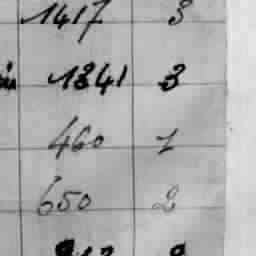 1417 3
1841 3
460 1
650 2